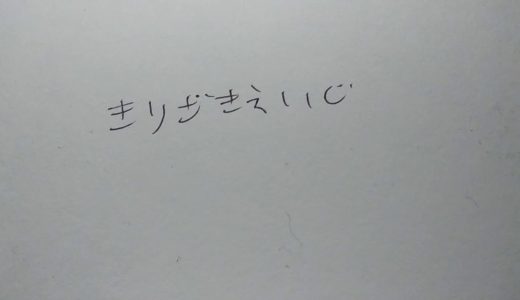 きりざきえいじ